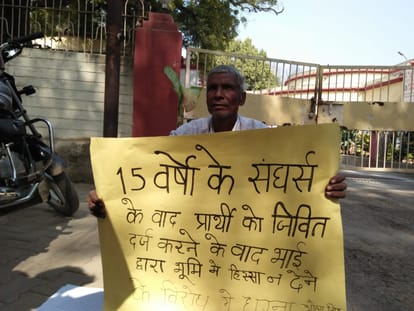 15 वर्षो के संघर्स
के वाद प्रार्थी को जिवित
दर्ज करने के वाद भाई
द्वारा भूमि मे हिस्सा न देने
के विरोध मे धरना